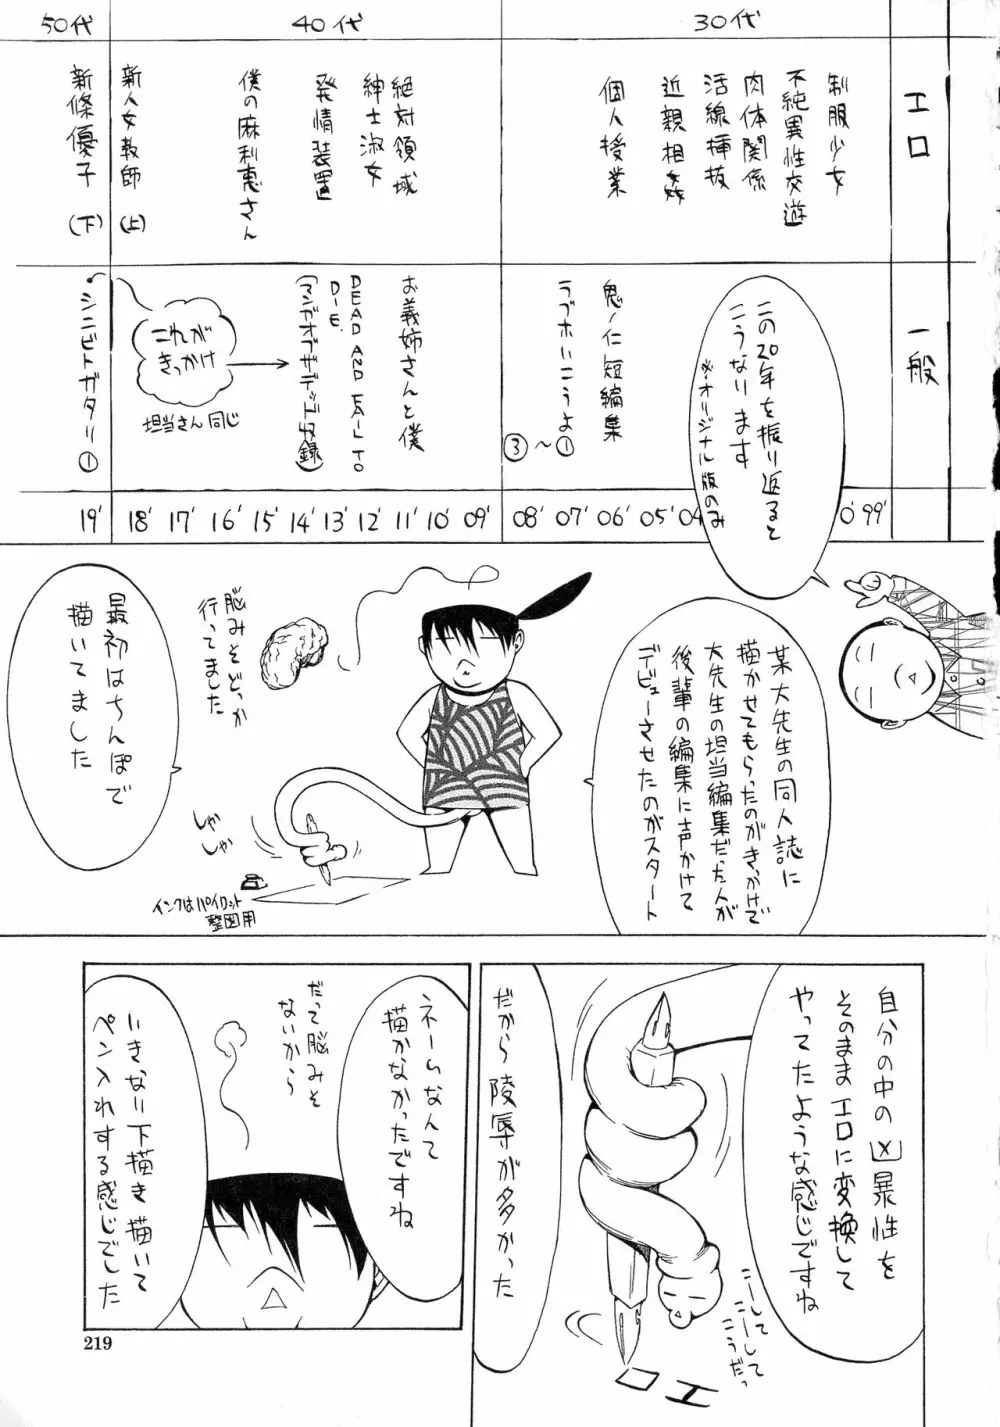 50代
40代
30代
エロ
制服少女
不純異性交遊
肉体関係
活線挿抜
近親相姦
個人授業
絶対領域
紳士淑女
発情装置
僕の麻利恵さん
新人女教師(上)
新條優子(下)
一般
鬼ノ仁短編集
ラブホいこうよ①
～
③
お義姉さんと僕
DEAD AND FAIL TO
DIE.
(マンガオブザデッド収録)
これが
きっかけ
担当さん同じ
シニビトガタリ①
19' 18' 17' 16' 15' 14' 13' 12' 11' 10' 09' 08' 07' 06' 05' 04 0' 99'
この20年を振り返ると
こうなります
※オリジナル版のみ
某大先生の同人誌に
描かせてもらったのがきっかけで
大先生の担当編集だった人が
後輩の編集に声かけて
デビューさせたのがスタート
脳みそどっか
行ってました
最初はちんぽで
描いてました
しゃか
しゃか
インクはパイロット
製図用
自分の中の凶暴性を
そのままエロに変換して
やってたような感じですね
だから陵辱が多かった
こーして
こーして
こうだっ
エロ
ネームなんて
描かなかったですね
だって脳みそ
ないから
いきなり下描き描いて
ペン入れする感じでした
219